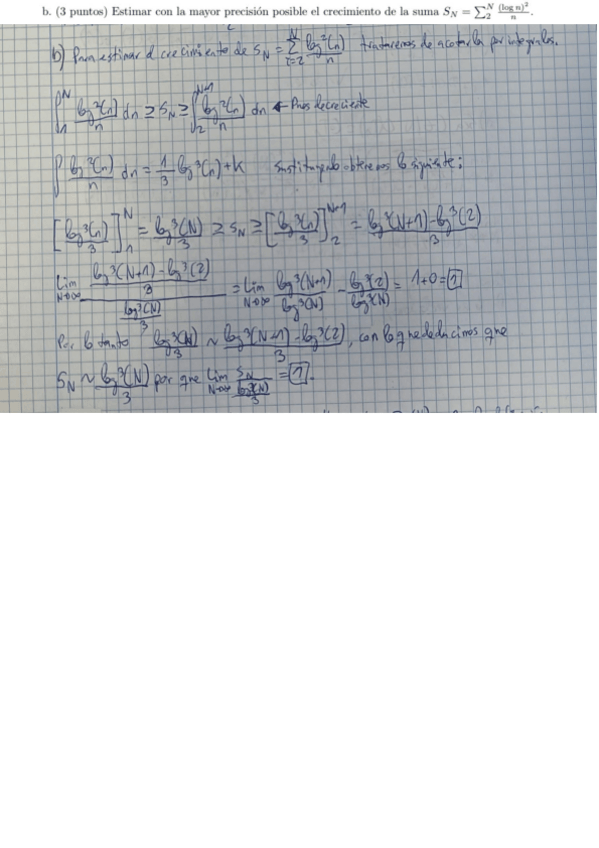 b. (3 puntos) Estimar con la mayor precisión posible el crecimiento de la suma S_N = ∑_2^N (log n)²/n.
b) Para estimar el crecimiento de S_N = ∑_{i=2}^N log²(n)/n trataremos de acotarla por integrales.
∫_1^N log²(n)/n dn ≥ S_N ≥ ∫_2^{N+1} log²(n)/n dn ← Pues decreciente
∫ log²(n)/n dn = 1/3 log³(n) + K sustituyendo obtenemos lo siguiente:
[log³(n)/3]_1^N = log³(N)/3 ≥ S_N ≥ [log³(n)/3]_2^{N+1} = (log³(N+1) - log³(2))/3
lim_{N→∞} ((log³(N+1) - log³(2))/3)/(log³(N)/3) = lim_{N→∞} log³(N+1)/log³(N) - log³(2)/log³(N) = 1+0 = 1
Por lo tanto log³(N)/3 ~ (log³(N+1) - log³(2))/3, con lo que deducimos que
S_N ~ log³(N)/3 por que lim_{N→∞} S_N/(log³(N)/3) = 1.